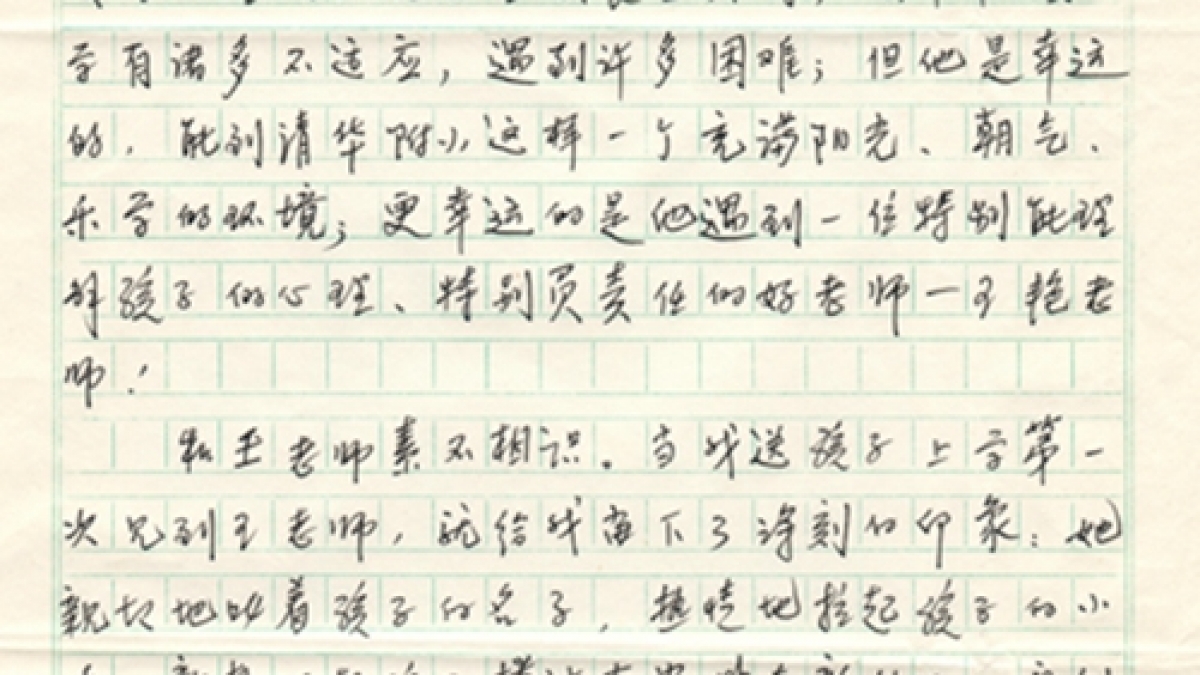 学有诸多不适应，遇到许多困难；但他是幸运
的，能到清华附小这样一个充满阳光、朝气、
乐学的环境；更幸运的是他遇到一位特别能理
解孩子的心理、特别负责任的好老师—王艳老
师！
和王老师素不相识。当我送孩子上学第一
次见到王老师，就给我留下了深刻的印象：她
亲切地叫着孩子的名子，热情地拉起孩子的小